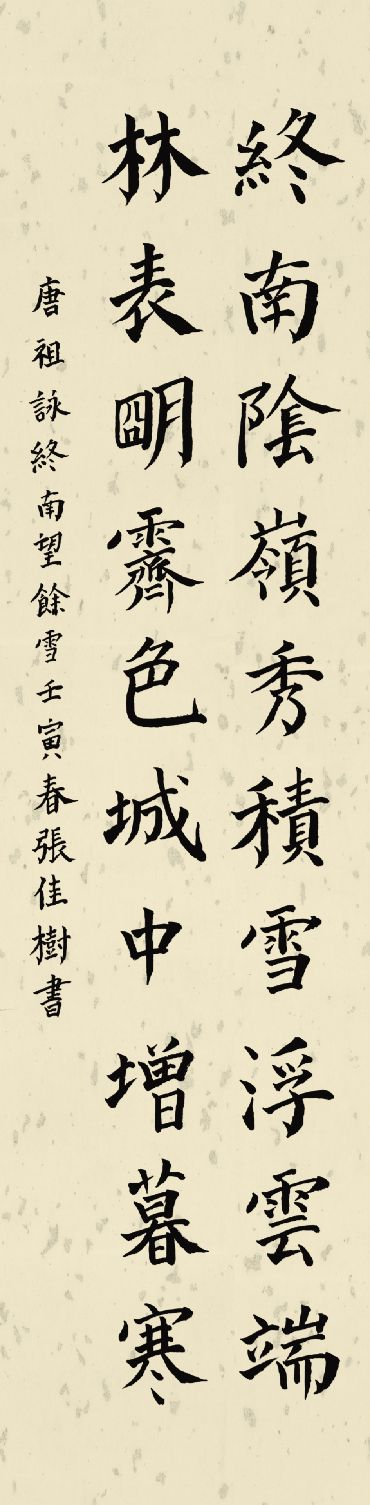 終南陰嶺秀積雪浮雲端
林表朙霽色城中增暮寒
唐祖詠終南望餘雪壬寅春張佳樹書